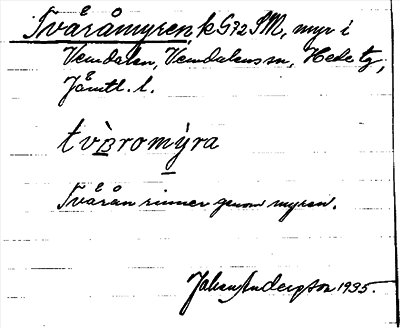 Tvåråmyren, k G72 SM, myr i
Vemdalen, Vemdalens sn, Hede tg,
Jämtl. l.
tv̀ɒromýra
Tvårån rinner genom myren.
Johan Anderson 1935.